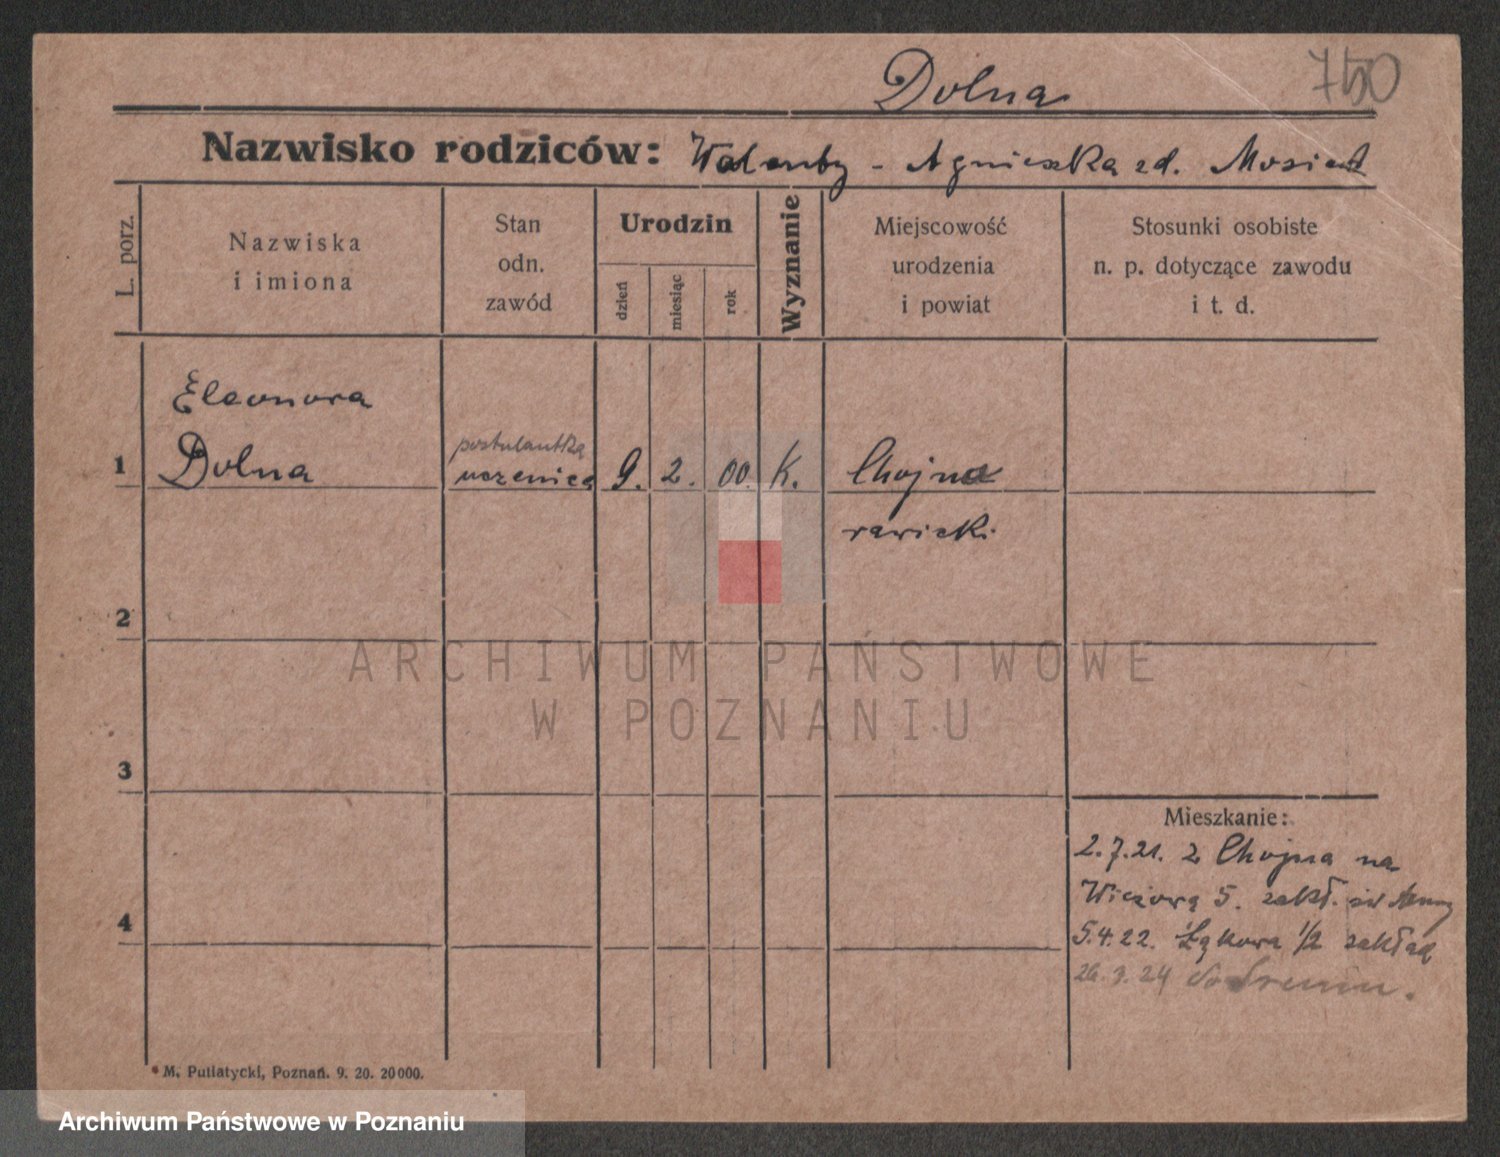 Dolna
750
Nazwisko rodziców: Walenty - Agnieszka zd. Mosiek
L. porz.
Nazwiska
i imiona
Stan
odn.
zawód
Urodzin
dzień
miesiąc
rok
Wyznanie
Miejscowość
urodzenia
i powiat
Stosunki osobiste
n. p. dotyczące zawodu
i t. d.
Eleonora
postulantka
1 Dolna uczenica 9. 2. 00. K. Chojna
rawicki.
2
ARCHIWUM PAŃSTWOWE
W POZNANIU
3
Mieszkanie:
2.7.21. z Chojna na
Wieżową 5. zakł. św Anny
4
5.4.22. Łąkowa 1/2 zakład
26.3.24 do Śremu.
M. Putiatycki, Poznań. 9. 20. 20000.
Archiwum Państwowe w Poznaniu